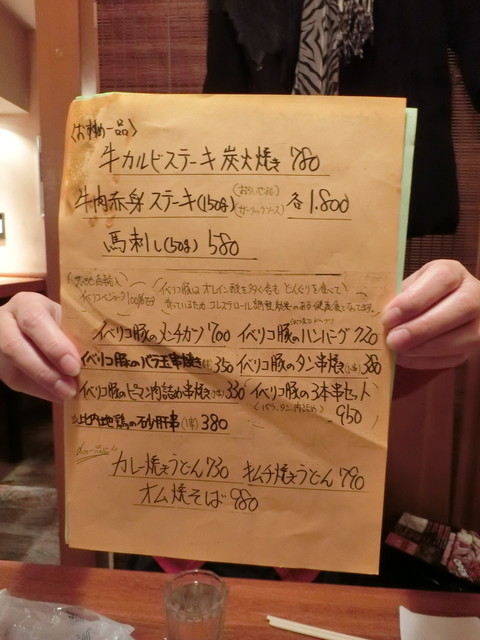 〈お勧め一品〉
牛カルビステーキ炭火焼き 780
牛肉赤身ステーキ(150g) (おろしポン酢 ガーリックソース) 各1.800
馬刺し(50g) 580
イベリコ豚は オレイン酸を多く含む どんぐりを食べて
育っているため コレステロール
イベリコベジョータ100%使用
イベリコ豚のメンチカツ 700 イベリコ豚のハンバーグ 720
イベリコ豚のバラ玉串焼き(1本) 350 イベリコ豚のタン串焼(1本) 380
イベリコ豚のピーマン肉詰め串焼き(1本) 330 イベリコ豚の3本串セット
(バラ、タン、肉詰め) 950
比内地鶏の砂肝串(1本) 380
カレー焼きうどん 730 キムチ焼きうどん 790
オム焼そば 980